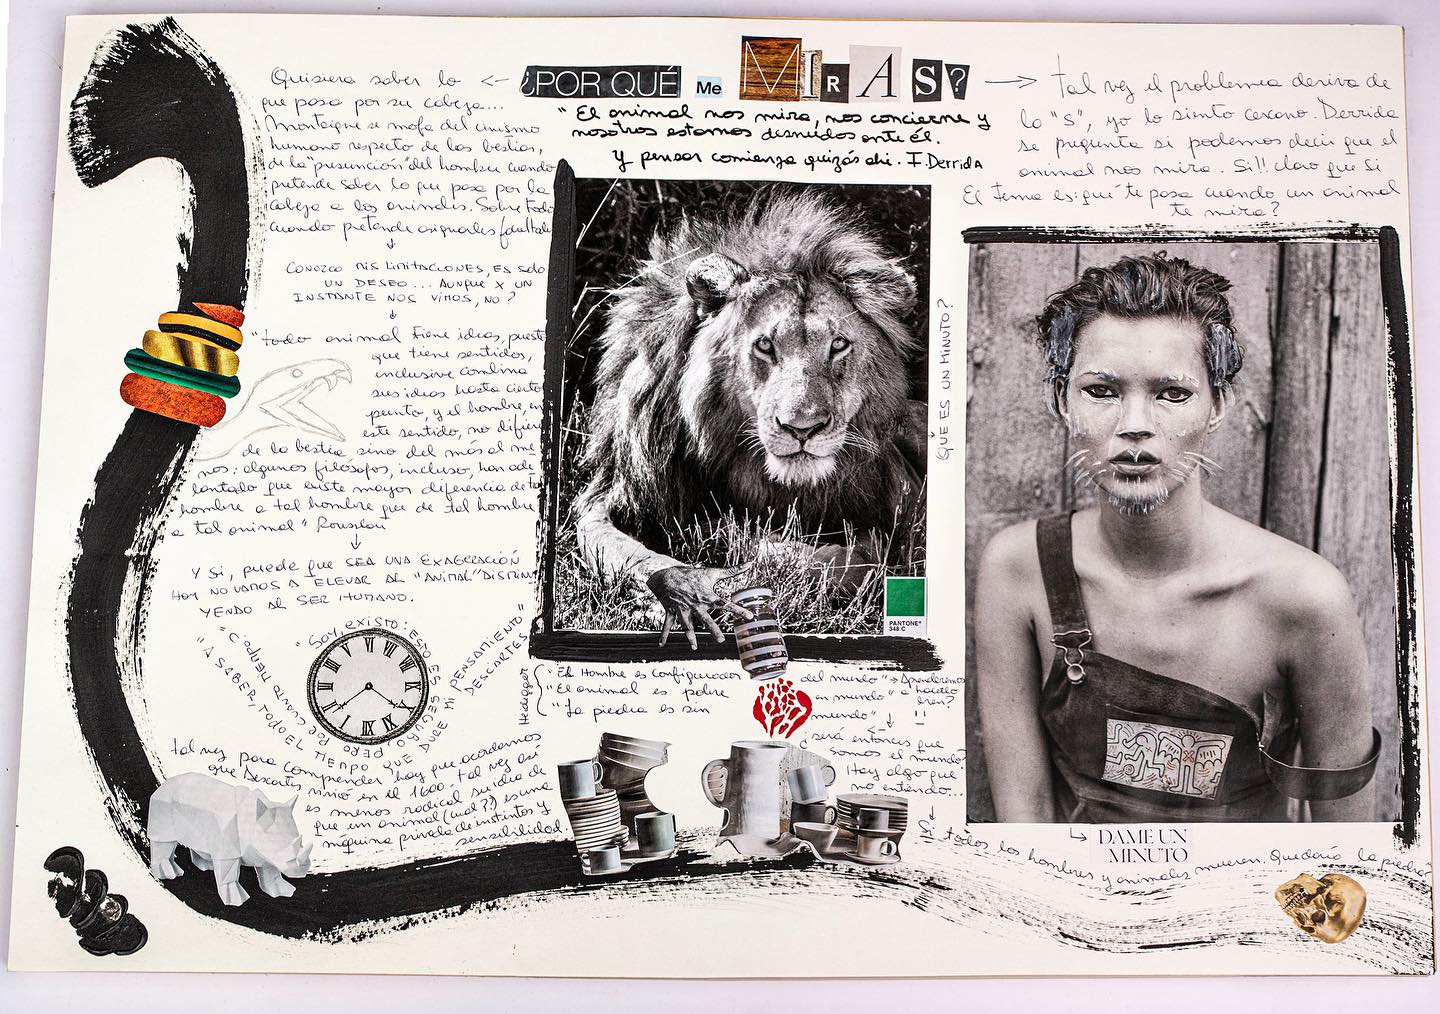 ¿POR QUÉ Me MIRAS?
Quisiera saber lo <--
que pasa por su cabeza...
Montaigne se mofa del cinismo
humano respecto de las bestias,
de la "presunción" del hombre cuando
pretende saber lo que pasa por la
cabeza a los animales. Sobre todo
cuando pretende asignarles
CONOZCO MIS LIMITACIONES, ES SOLO
UN DESEO... AUNQUE X UN
INSTANTE NOS VIMOS, NO?
"todo animal tiene ideas, puesto
que tiene sentidos,
inclusive combina
sus ideas hasta cierto
punto, y el hombre, en
este sentido, no difiere
de la bestia sino del más al me
nos: algunos filósofos, incluso, han ade
lantado que existe mayor diferencia de tal
hombre a tal hombre que de tal hombre
a tal animal" Rousseau
Y SI, puede que SEA UNA EXAGERACIÓN
HOY NO VAMOS A ELEVAR AL "ANIMAL" DISMIN
YENDO AL SER HUMANO.
"Soy existo: ESTO ES SEGURO, PERO ¿CUÁNTO TIEMPO?
"A SABER, TODO EL TIEMPO QUE DURE MI PENSAMIENTO"
DESCARTES
tal vez para comprender hay que acordarnos
que Descartes vivió en el 1600, tal vez así
es menos radical su idea de
que un animal (cual??) es una
máquina privada de instintos y
sensibilidad
"El animal nos mira, nos concierne y
nosotros estamos desnudos ante él.
Y pensar comienza quizás ahí. J. Derrida
--> tal vez el problema deriva de
la "S", yo lo siento cercano. Derrida
se pregunta si podemos decir que el
animal nos mira. Si!! claro que si
El tema es: qué te pasa cuando un animal
te mira?
QUE ES UN MINUTO?
PANTONE®
348 C
Heidegger
"El Hombre es configurador del mundo" → Aprenderemos
"El animal es pobre en mundo" a hacerlo
"La piedra es sin mundo" bien?
será entonces que
somos el mundo?
Hay algo que
no entendo...
DAME UN
MINUTO
Si todos los hombres y animales mueren. Quedaría la piedra